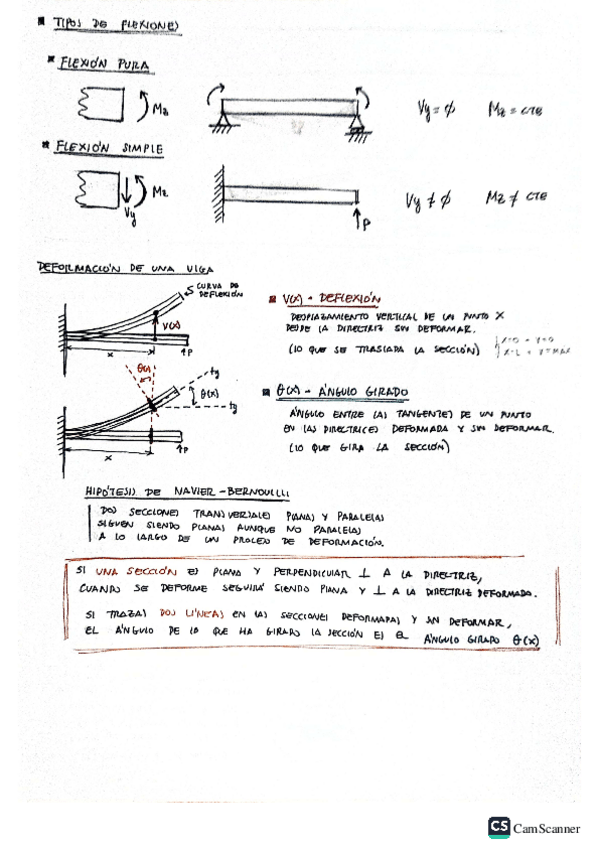 TIPOS DE FLEXIONES
FLEXIÓN PURA
Mz
Vy = ϕ Mz = CTE
FLEXIÓN SIMPLE
Mz
Vy
P
Vy ≠ ϕ Mz ≠ CTE
DEFORMACIÓN DE UNA VIGA
CURVA DE
DEFLEXIÓN
V(x)
x
P
V(x) - DEFLEXIÓN
DESPLAZAMIENTO VERTICAL DE UN PUNTO X
DESDE LA DIRECTRIZ SIN DEFORMAR.
(LO QUE SE TRASLADA LA SECCIÓN)
x=0 → V=0
x=L → V=MAX
θ(x)
tg
θ(x)
tg
x
P
θ(x) - ÁNGULO GIRADO
ÁNGULO ENTRE LAS TANGENTES DE UN PUNTO
EN LAS DIRECTRICES DEFORMADA Y SIN DEFORMAR.
(LO QUE GIRA LA SECCIÓN)
HIPÓTESIS DE NAVIER-BERNOUILLI
DOS SECCIONES TRANSVERSALES PLANAS Y PARALELAS
SIGUEN SIENDO PLANAS AUNQUE NO PARALELAS
A LO LARGO DE UN PROCESO DE DEFORMACIÓN.
SI UNA SECCIÓN ES PLANA Y PERPENDICULAR ⊥ A LA DIRECTRIZ,
CUANDO SE DEFORME SEGUIRÁ SIENDO PLANA Y ⊥ A LA DIRECTRIZ DEFORMADA.
SI TRAZAS DOS LÍNEAS EN LAS SECCIONES DEFORMADAS Y SIN DEFORMAR,
EL ÁNGULO DE LO QUE HA GIRADO LA SECCIÓN ES EL ÁNGULO GIRADO θ(x)
CS CamScanner